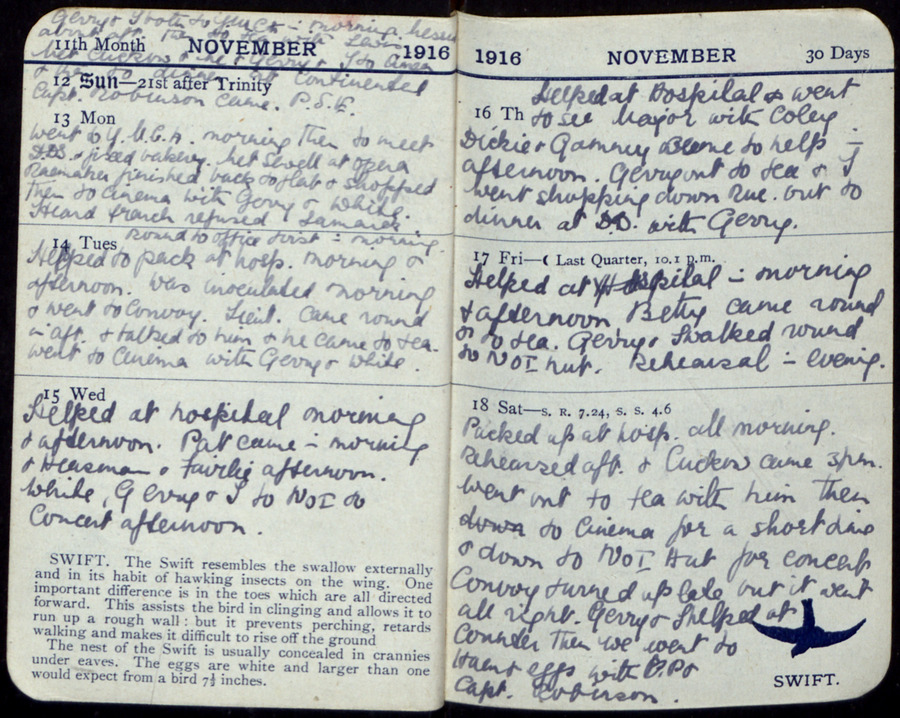 Gerry & I both to YMCA in morning.
about aft. then to tea with
11th Month NOVEMBER 1916
met Cuckow & he & Gerry & I to
& to dinner at Continental
12 Sun—21st after Trinity
Capt. Robinson came. P.S.E.
13 Mon
went to Y.M.C.A. morning then to meet
D.D. & fixed bakery. Met Sewell at opera
finished back to flat & shopped
then to Cinema with Gerry & White.
Heard french refused
round to office first in morning.
14 Tues
Helped to pack at hosp. morning &
afternoon. Was inoculated morning
& went to Convoy. Lieut. came round
in aft. & talked to him & he came to tea.
went to Cinema with Gerry & White.
15 Wed
Helped at hospital morning
& afternoon. Pat came in morning
& Heasman & afternoon.
White, Gerry & I to No I to
Concert afternoon.
SWIFT. The Swift resembles the swallow externally
and in its habit of hawking insects on the wing. One
important difference is in the toes which are all directed
forward. This assists the bird in clinging and allows it to
run up a rough wall: but it prevents perching, retards
walking and makes it difficult to rise off the ground
The nest of the Swift is usually concealed in crannies
under eaves. The eggs are white and larger than one
would expect from a bird 7½ inches.
1916 NOVEMBER 30 Days
Helped at Hospital & went
16 Th to see Mayor with Coley
Dickie & Gammy came to help in
afternoon. Gerry out to tea & I
went shopping down Rue. out to
dinner at D.D. with Gerry.
17 Fri—☾ Last Quarter, 10.1 p.m.
Helped at Hospital in morning
& afternoon Betty came round
to tea. Gerry & I walked round
to No I hut. Rehearsal in evening.
18 Sat—S. R. 7.24, S. S. 4.6
Packed up at hosp. all morning.
Rehearsed aft. & Cuckow came 3pm.
Went out to tea with him then
down to Cinema for a short time
& down to No I Hut for concert
Convoy turned up late but it went
all right. Gerry & I helped at
Counter then we went to
Ham & eggs with B.P. &
Capt. Robinson.
SWIFT.